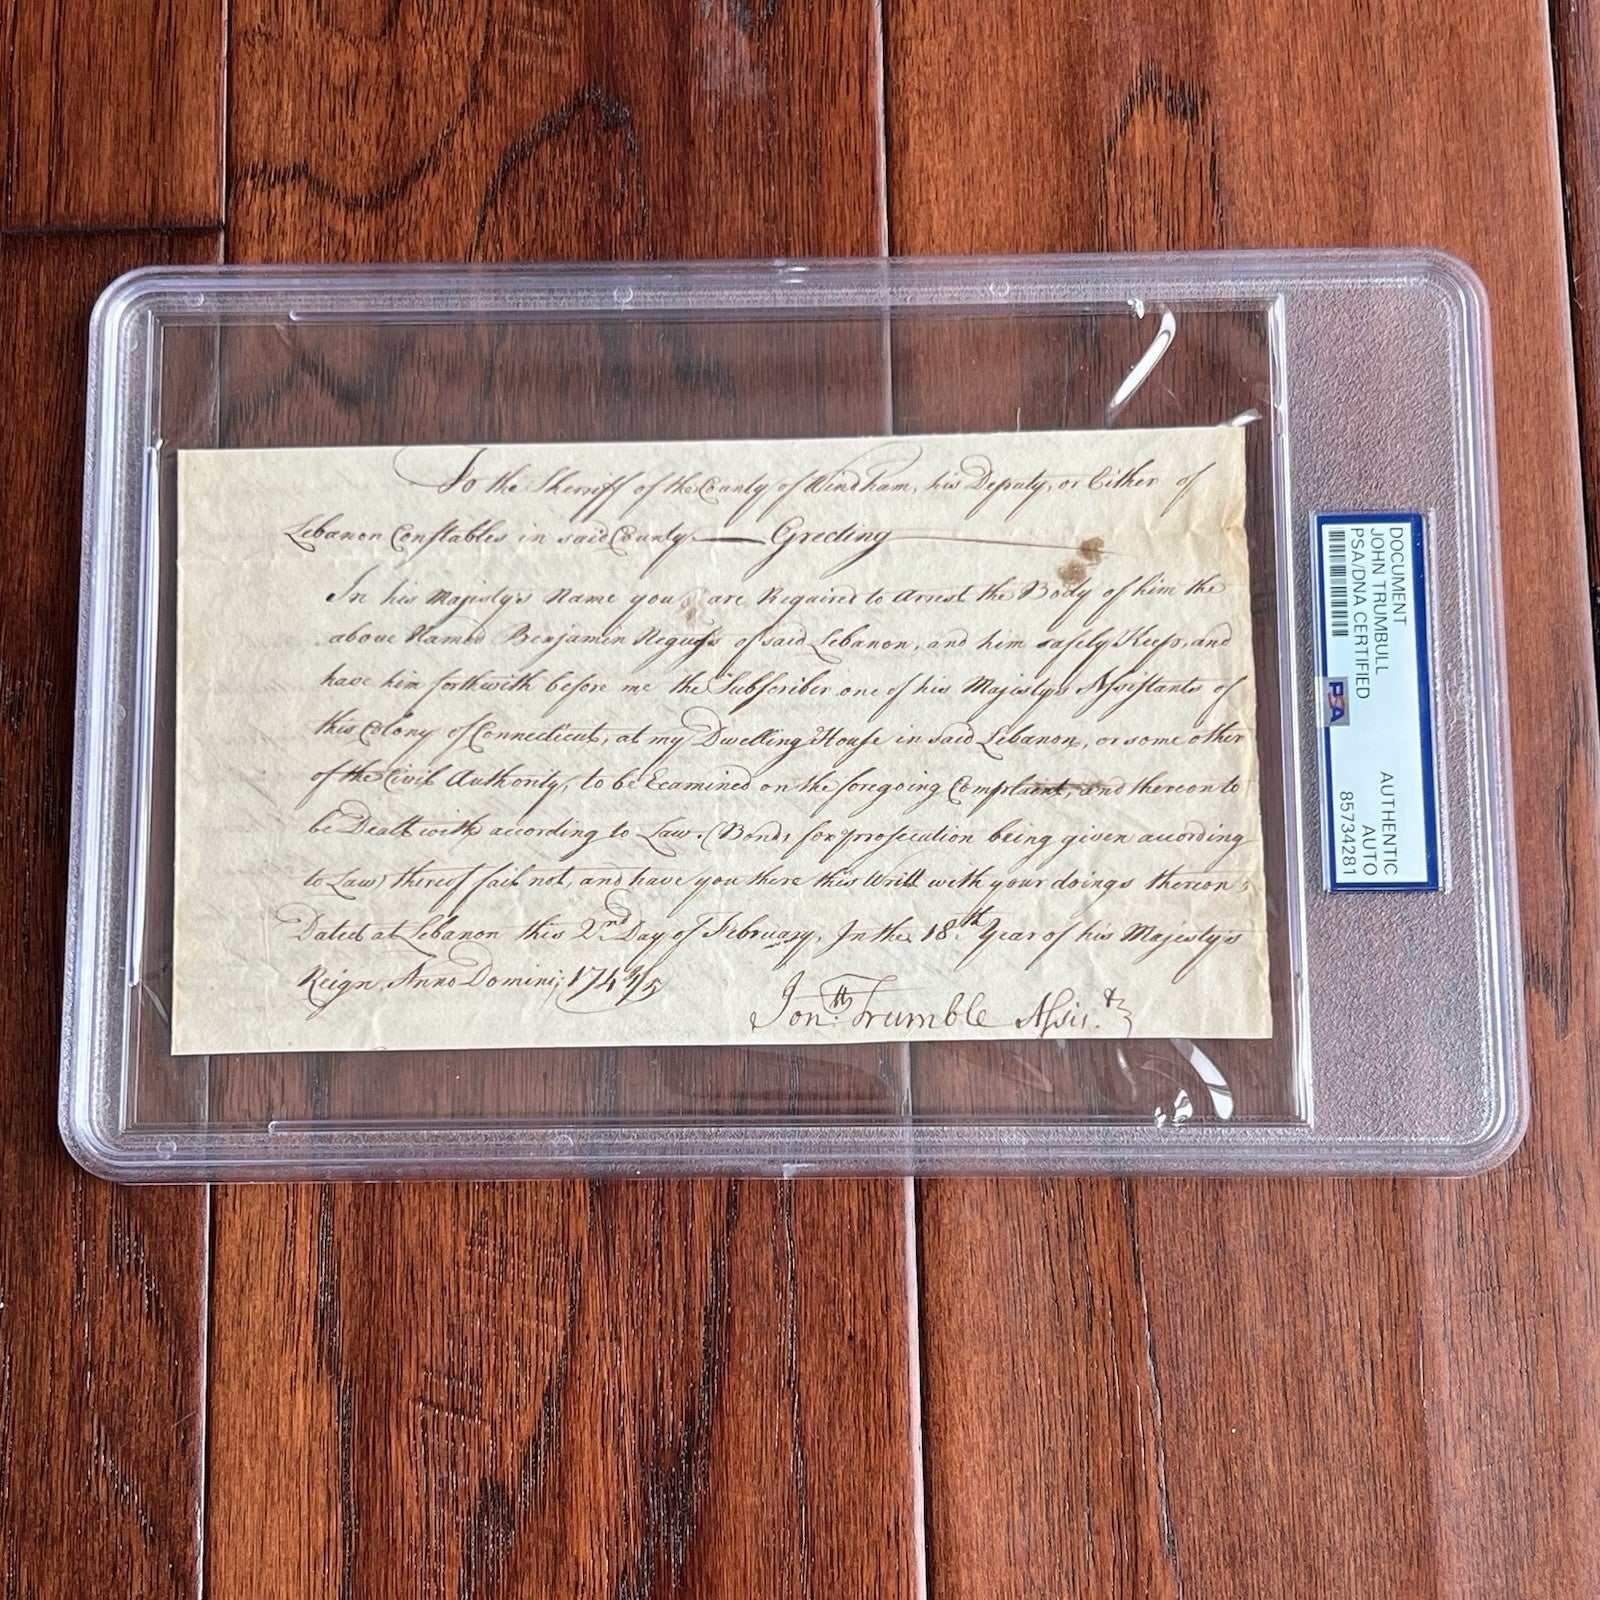 To the Sheriff of the County of Windham, his Deputy, or Either of
Lebanon Constables in said County. — Greeting
In his Majesty's Name you are Required to Arrest the Body of him the
above Named Benjamin of said Lebanon, and him safely Keep, and
have him forthwith before me the Subscriber one of his Majesty's Assistants of
this Colony of Connecticut, at my Dwelling House in said Lebanon, or some other
of the Civil Authority, to be Examined on the foregoing Complaint, and thereon to
be Dealt with according to Law. (Bonds for prosecution being given according
to Law) thereof fail not, and have you there this Writt with your doings thereon;
Dated at Lebanon this 2nd Day of February, In the 18th Year of his Majesty's
Reign, Anno Domini; 1744/5
Jonth Trumble Assist
DOCUMENT
JOHN TRUMBULL
PSA/DNA CERTIFIED
PSA
AUTHENTIC
AUTO
85734281